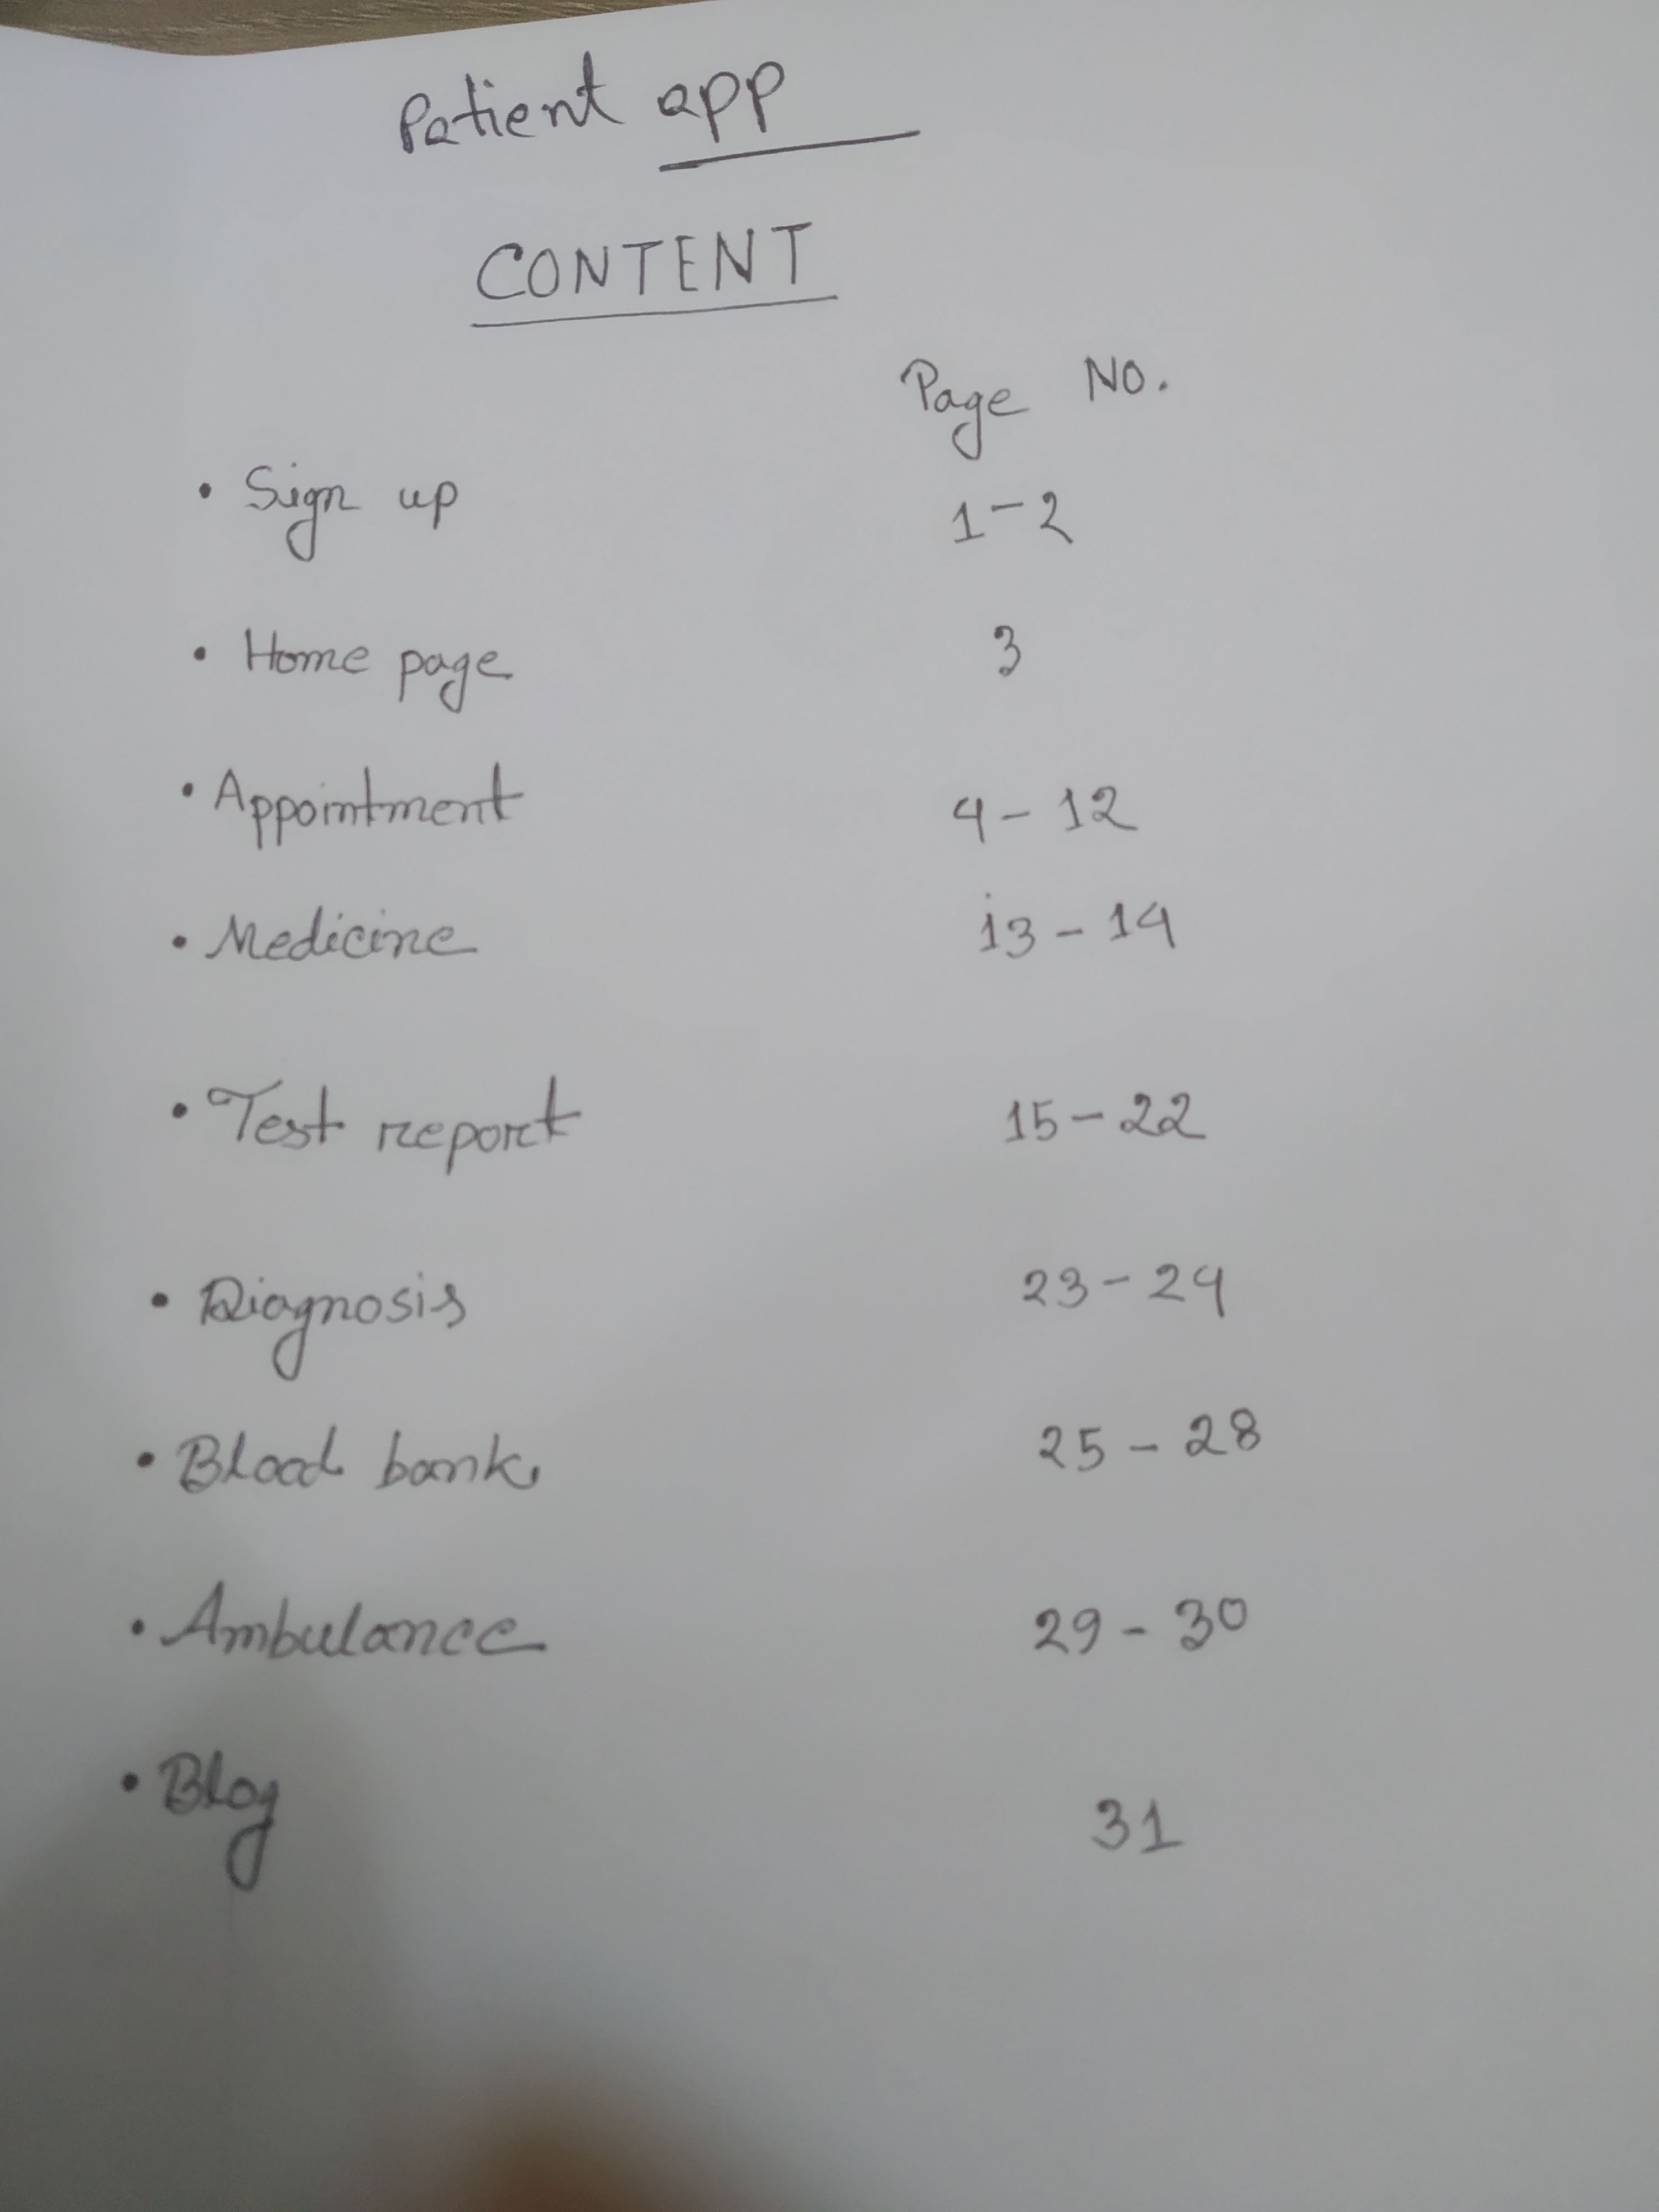 Patient app
CONTENT
Page No.
• Sign up 1-2
• Home page 3
• Appointment 4-12
• Medicine 13-14
• Test report 15-22
• Diagnosis 23-24
• Blood bank 25-28
• Ambulance 29-30
• Blog 31